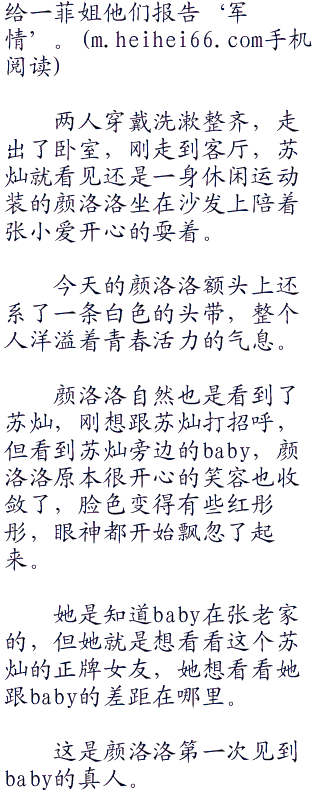 给一菲姐他们报告‘军
情’。(m.heihei66.com手机
阅读)
两人穿戴洗漱整齐，走
出了卧室，刚走到客厅，苏
灿就看见还是一身休闲运动
装的颜洛洛坐在沙发上陪着
张小爱开心的耍着。
今天的颜洛洛额头上还
系了一条白色的头带，整个
人洋溢着青春活力的气息。
颜洛洛自然也是看到了
苏灿，刚想跟苏灿打招呼，
但看到苏灿旁边的baby，颜
洛洛原本很开心的笑容也收
敛了，脸色变得有些红彤
彤，眼神都开始飘忽了起
来。
她是知道baby在张老家
的，但她就是想看看这个苏
灿的正牌女友，她想看看她
跟baby的差距在哪里。
这是颜洛洛第一次见到
baby的真人。